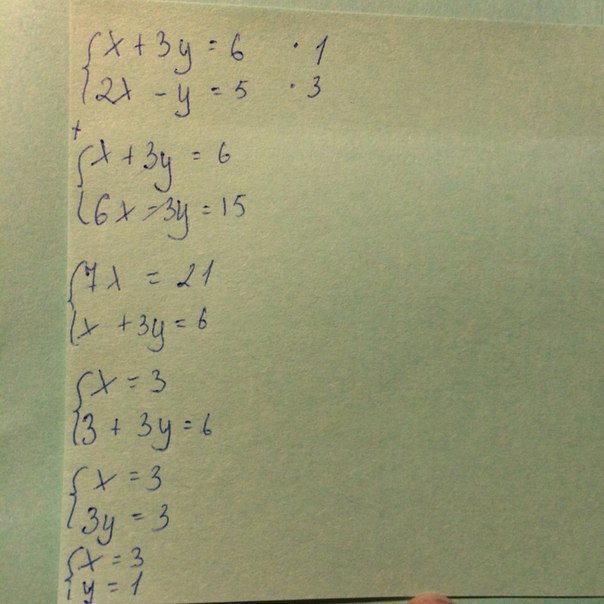 { x + 3y = 6 · 1
2x - y = 5 · 3
+
{ x + 3y = 6
6x - 3y = 15
{ 7x = 21
x + 3y = 6
{ x = 3
3 + 3y = 6
{ x = 3
3y = 3
{ x = 3
y = 1